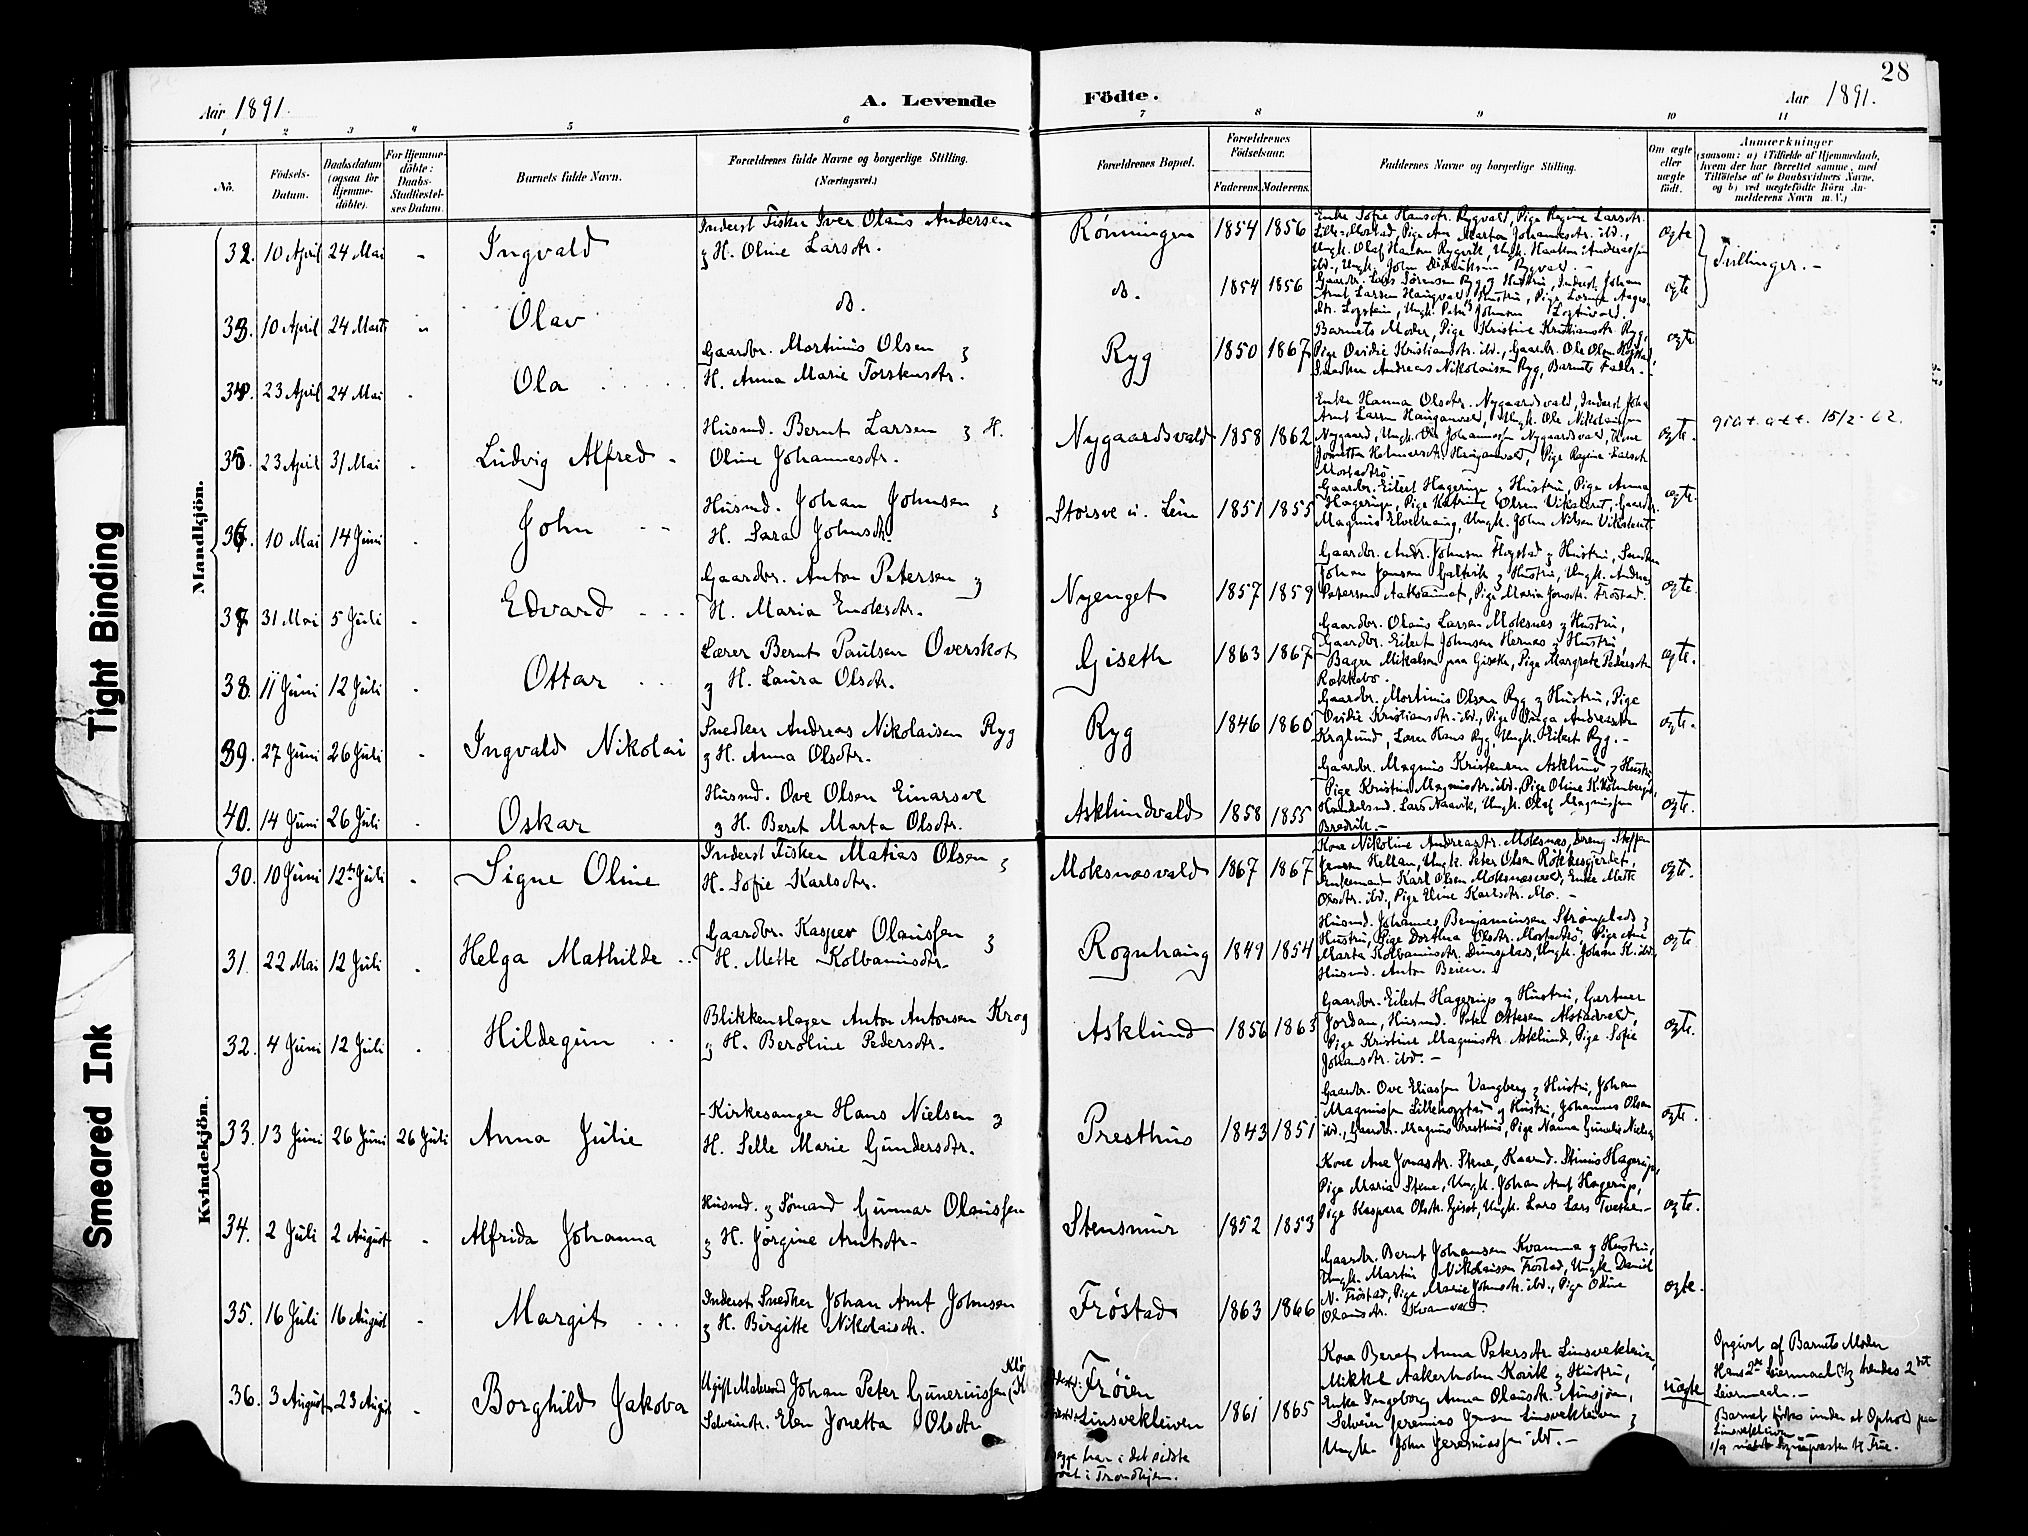 28
Aar 1891.
A. Levende
Födte.
Aar 1891.
1 2 3 4 5 6 7 8 9 10 11
No.
Födsels-Datum.
Daabsdatum (ogsaa for Hjemmedöbte).
For Hjemmedöbte: Daabs-Stadfæstelses Datum.
Barnets fulde Navn.
Forældrenes fulde Navne og borgerlige Stilling.
(Næringsvei.)
Forældrenes Bopæl.
Forældrenes Födselsaar.
Faderens. Moderens.
Faddernes Navne og borgerlige Stilling.
Om ægte eller uægte födt.
Anmærkninger
(saasom: a) i Tilfælde af Hjemmedaab, hvem der har forrettet samme, med Tilföielse af to Daabsvidners Navne, og b) ved uægtefödte Börn Anmelderens Navn m.V.)
Mandkjön.
32. 10 April 24 Mai - Ingvald
Inderst Fisker Iver Olaus Andersen
& H. Oline Larsdtr.
Rønningen 1854 1856
Enke Sofie Hansdtr. Rygvald, Pige Regine Larsdtr.
ægte
Tvillinger. -
33. 10 April 24 Mai " Olav
do.
do. 1854 1856
Gaardbr. Lars Sørensen Ryg & Hustru, Inderst Johan
ægte
34. 23 April 24 Mai - Ola
Gaardbr. Mortinus Olsen &
H. Anna Marie Torstensdtr.
Ryg 1850 1867
Barnets Moder, Pige Kristine Kristiansdtr. Ryg,
Pige Ovidie Kristiansdtr. ibd., Gaardbr. Ole Olsen
Snedker Andreas Nikolaisen Ryg, Barnets Fader. -
ægte
35. 23 April 31 Mai - Ludvig Alfred -
Husmd. Bernt Larsen & H.
Oline Johannesdtr.
Nygaardsvald 1858 1862
Enke Hanna Olsdtr. Nygaardsvald, Inderst John
Arnt Larsen Hauganvald, Ungk. Ole Nikolaisen
Nygaard, Ungk. Ole Johannessen Nygaardsvald,
ægte.
giat. att. 15/2-62.
36. 10 Mai 14 Juni - John
Husmd. Johan Johnsen &
H. Sara Johnsdtr.
Storsve u. Lein 1851 1855
Gaardbr. Eilert Hagerup & Hustru, Pige Anna
Hagerup, Pige Katrine Olsen Vikslevet, Gaardbr.
Magnus Elverhaug, Ungk. John Nilsen Vikslevet
ægte.
37. 31 Mai 5 Juli - Edvard
Gaardbr. Anton Petersen &
H. Maria Enoksdtr.
Nyenget 1857 1859
Gaardbr. Andr. Johnsen Flegstad & Hustru, Snedker
Johan Jensen & Hustru, Ungk. Andreas
Petersen, Pige Maria Jonsdtr. Frøstad.
ægte.
38. 11 Juni 12 Juli - Ottar
Lærer Bernt Paulsen Overskot
& H. Laura Olsdtr.
Giseth 1863 1867
Gaardbr. Olaus Larsen Moksnes & Hustru,
Gaardbr. Eilert Johnsen Hernes & Hustru,
Bager Mikalsen paa Giseth, Pige Margrete Pedersdtr
Røkkebø.
ægte.
39. 27 Juni 26 Juli - Ingvald Nikolai
Snedker Andreas Nikolaisen Ryg
& H. Anna Olsdtr.
Ryg 1846 1860
Gaardbr. Mortinus Olsen Ryg & Hustru, Pige
Ovidie Kristiansdtr. ibd., Pige Inga Andreasdtr
Kroglund, Lærer Hans Ryg, Ungk. Eilert Ryg. -
ægte.
40. 14 Juni 26 Juli - Oskar
Husmd. Ove Olsen Einarsve
& H. Beret Marta Olsdtr.
Asklundvald 1858 1855
Gaardbr. Magnus Kristensen Asklund & Hustru,
Pige Kristine Magnusdtr. ibd., Pige Oline K. Holmberget,
Handelsmd. Lars Naavik, Ungk. Olaf Magnussen
Bredvik. -
ægte.
Kvindekjön.
30. 10 Juni 12te Juli - Signe Oline
Inderst Fisker Matias Olsen &
H. Sofie Karlsdtr.
Moksnæsvald 1867 1867
Kone Nikoline Andreasdtr. Moksnæs, Dreng Steffen
Jensen Hellan, Ungk. Peter Olsen Røkkesgjerdet,
Enkemand Karl Olsen Moksnæsvald, Enke Mette
Olsdtr. ibd., Pige Eline Karlsdtr. Mo. -
ægte.
31. 22 Mai 12 Juli - Helga Mathilde
Gaardbr. Kasper Olaussen &
H. Mette Kolbanusdtr.
Rognhaug 1849 1854
Husmd. Johannes Benjaminsen Strømplads &
Hustru, Pige Dorthea Olsdtr. Mostadtrø, Pige Ane
Marta Kolbanusdtr. Dunsplads, Ungk. Johan K. ibd.,
Husmd. Anton Beien.
ægte
32. 4 Juni 12 Juli - Hildegun
Blikkenslager Anton Antonsen Krog
& H. Beroline Pedersdtr.
Asklund 1856 1863
Gaardbr. Eilert Hagerup & Hustru, Gartner
Jordan, Husmd. Peter Ottesen Alstadvald,
Pige Kristine Magnusdtr. Asklund, Pige Sofie
Johansdtr. ibd. -
ægte.
33. 13 Juni 26 Juni 26 Juli Anna Julie
Kirkesanger Hans Nielsen &
H. Selle Marie Gundersdtr.
Presthus 1843 1851
Gaardbr. Ove Eliassen Vangberg & Hustru, Johan
Magnussen Lillehopstad & Hustru, Johannes Olsen
ibd., Gaardbr. Magnus Presthus, Pige Nanna Gunelie Nielsen
ægte.
34. 2 Juli 2 August - Alfrida Johanna
Husmd. & Sømand Gunnar Olaussen
& H. Jørgine Arntsdtr. -
Stensmur 1852 1853
Kone Ane Jonasdtr. Stene, Kaarmd. Stinus Hagerup,
Pige Maria Stene, Ungk. Johan Arnt Hagerup,
Pige Kaspara Olsdtr. Gisot, Ungk. Lars Lars. -
ægte.
35. 16 Juli 16 August - Margit
Inderst Snedker Johan Arnt Johnsen
& H. Birgitte Nikolaisdtr.
Frøstad 1863 1866
Gaardbr. Bernt Johansen Kvamma & Hustru,
Ungk. Martin Nikolaisen Frøstad, Ungk. Daniel
N. Frøstad, Pige Marie Johnsdtr. ibd., Pige Oline
Olausdtr. Kvamvald
ægte.
36. 3 August 23 August - Borghild Jakoba
Ugift Matersvd Johan Peter Gunerinssen
Selveierdtr. Elen Jonetta Olsdtr
Frøien
Linsvekleiven
1861 1865
Kone Beret Anna Petersdtr Linsvekleiven,
Mikkel Aakerholm Korvik & Hustru,
Enke Ingeborg Anna Olausdtr. Aunsjøen,
Selveier Jeremias Jensen Linsvekleiven &
Ungk. John Jeremiassen ibd. -
uægte
Opgivet af Barnets Moder
Hans 2det Leiermaal & hendes 2det
Leiermaal. -
Barnet fødes under et Ophold paa
Linsvekleiven
Begge har i det sidste
været i Trondhjem.
Tight Binding
Smeared Ink